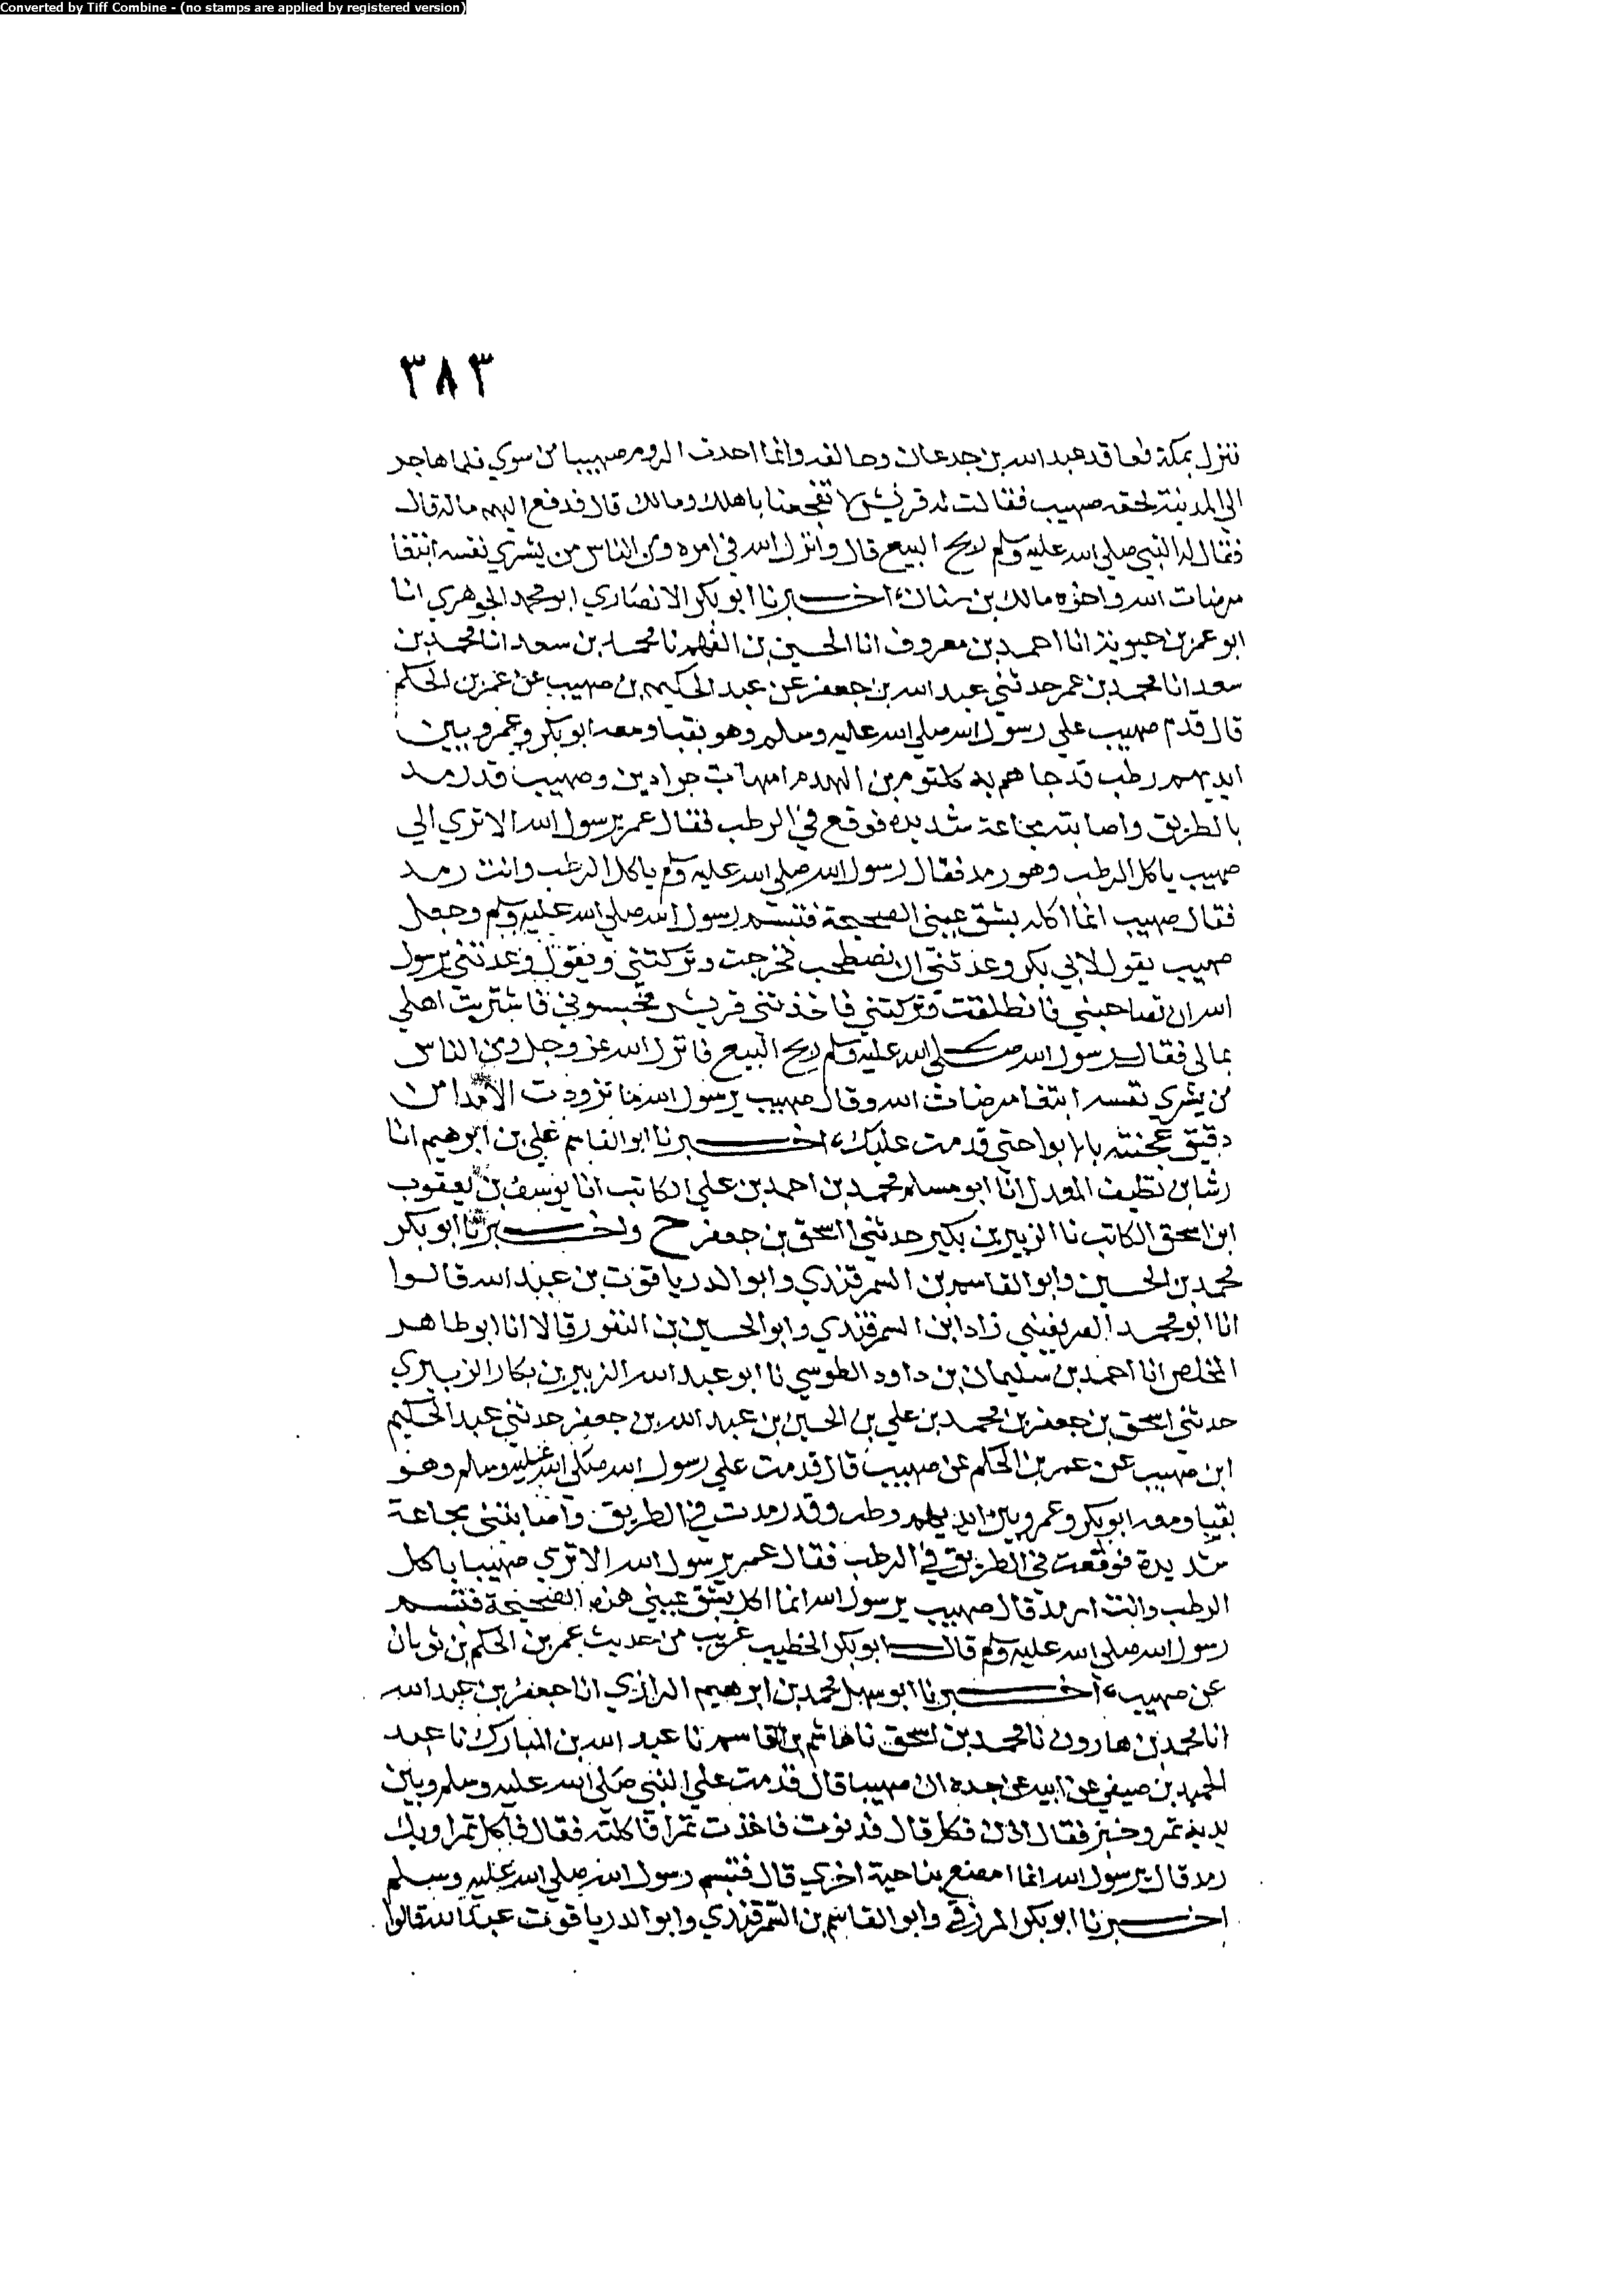 Converted by Tiff Combine - (no stamps are applied by registered version)
٣٨٣
فنزل بمكة فعاقد عبد الله بن جدعان وحالفه وانما احدت الروم صهيبا من سوي فلما هاجر
الي المدينة لحقه صهيب فقالت له قريش لا تفجعنا باهلك ومالك قال فدفع اليهم ماله قال
فقال له النبي صلي الله عليه وسلم ربح البيع قال وانزل الله في امره ومن الناس من يشري نفسه ابتغا
مرضات الله واخوه مالك بن سنان، اخبرنا ابو بكر الانصاري ابو محمد الجوهري انا
ابو عمر بن حيويه انا احمد بن معروف انا الحسين بن الفهم نا محمد بن سعد انا محمد بن
سعد انا محمد بن عمر حدثني عبد الله بن جعفر عن عبد الحكيم بن صهيب عن عمر بن الحكم
قال قدم صهيب علي رسول الله صلي الله عليه وسلم وهو بقبا ومعه ابو بكر وعمر وبين
ايديهم رطب قد جاهم به كلثوم بن الهدم امهات جرادين وصهيب قد رمد
بالطريق واصابته مجاعة شديدة فوقع في الرطب فقال عمر يرسول الله الا تري الي
صهيب ياكل الرطب وهو رمد فقال رسول الله صلي الله عليه وسلم ياكل الرطب وانت رمد
فقال صهيب انما اكله بشق عيني الصحيحة فتبسم رسول الله صلي الله عليه وسلم وجعل
صهيب يقول لابي بكر وعدتني ان نصطحب فخرجت وتركتني ويقول وعدتني يرسول
الله ان تصاحبني فانطلقت وتركتني فاخذتني قريش فحبسوني فاشتريت اهلي
بمالي فقال رسول الله صلي الله عليه وسلم ربح البيع فانزل الله عز وجل ومن الناس
من يشري نفسه ابتغا مرضات الله وقال صهيب يرسول الله ما تزودت الا مدا من
دقيق عجنته بالابوا حتي قدمت عليك، اخبرنا ابو القاسم علي بن ابرهيم انا
رشا بن نظيف المعدل انا ابو مسلم محمد بن احمد بن علي الكاتب انا يوسف بن يعقوب
ابن اسحق الكاتب نا الزبير بن بكير حدثني اسحق بن جعفر ح واخبرنا ابو بكر
محمد بن الحسين وابو القاسم بن السمرقندي وابو الدر ياقوت بن عبد الله قالوا
انا ابو محمد الصريفيني زاد ابن السمرقندي وابو الحسين بن النقور قالا انا ابو طاهر
المخلص انا احمد بن سليمان بن داود الطوسي نا ابو عبد الله الزبير بن بكار الزبيري
حدثني اسحق بن جعفر بن محمد بن علي بن الحسين بن عبد الله بن جعفر حدثني عبد الحكيم
ابن صهيب عن عمر بن الحكم عن صهيب قال قدمت علي رسول الله صلي الله عليه وسلم وهو
بقبا ومعه ابو بكر وعمر وبين ايديهم رطب وقد رمدت في الطريق واصابتني مجاعة
شديدة فوقعت في الطريق في الرطب فقال عمر يرسول الله الا تري صهيبا ياكل
الرطب وانت ارمد قال صهيب يرسول الله انما اكل بشق عيني هذه الصحيحة فتبسم
رسول الله صلي الله عليه وسلم قال ابو بكر الخطيب غريب من حديث عمر بن الحكم بن ثوبان
عن صهيب، اخبرنا ابو سهل محمد بن ابرهيم الرازي انا جعفر بن عبد الله
انا محمد بن هارون نا محمد بن اسحق نا هاشم بن القاسم نا عبد الله بن المبارك نا عبد
الحميد بن صيفي عن ابيه عن جده ان صهيبا قال قدمت علي النبي صلي الله عليه وسلم وبين
يديه تمر وخبز فقال ادن فكل قال فدنوت فاخذت تمرا فاكلته فقال فاكل تمرا وبك
رمد قال يرسول الله انما امضغ بناحية اخري قال فتبسم رسول الله صلي الله عليه وسلم
اخبرنا ابو بكر المرزقي وابو القاسم بن السمرقندي وابو الدر ياقوت عبد الله قالوا